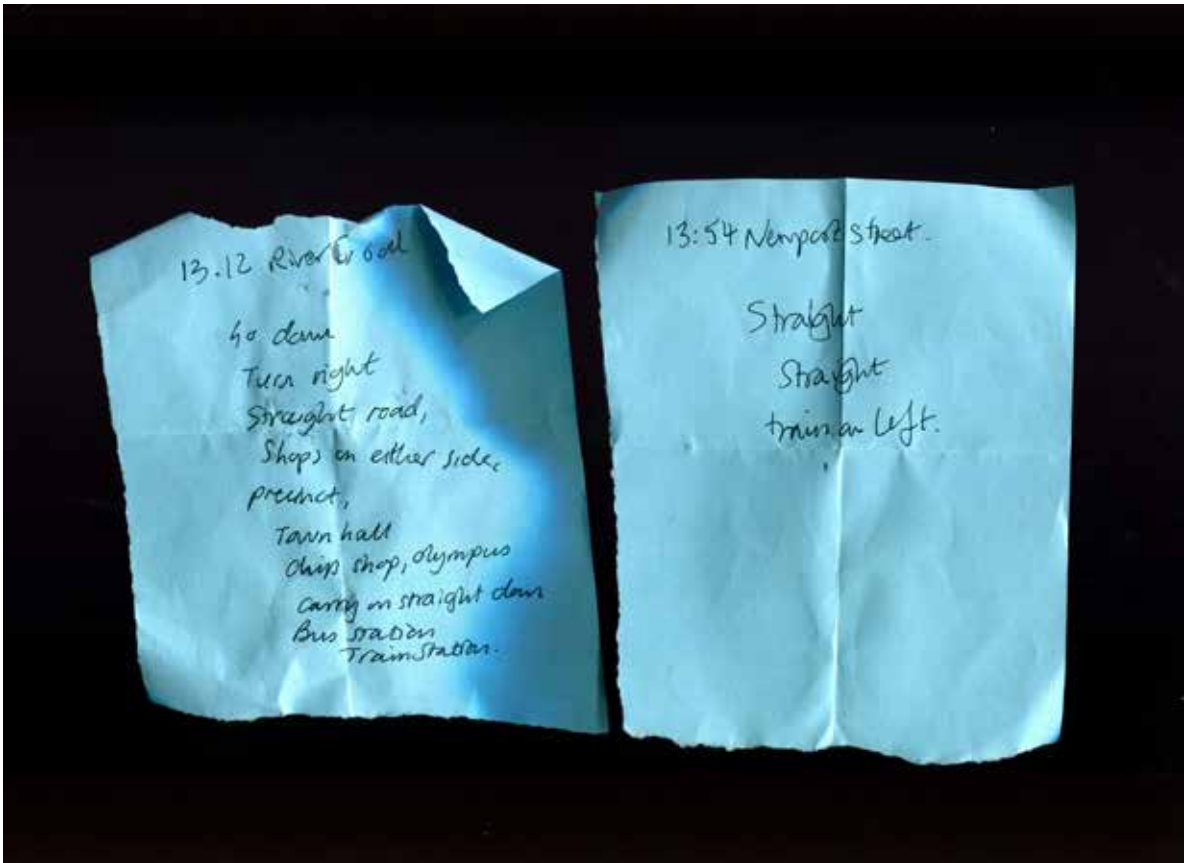 13.12 River Croal
Go down
Turn right
Straight road,
Shops on either side,
precinct,
Town hall
Chip shop, olympus
carry on straight down
Bus station
Train station.
13:54 Newport Street.
Straight
Straight
train on left.